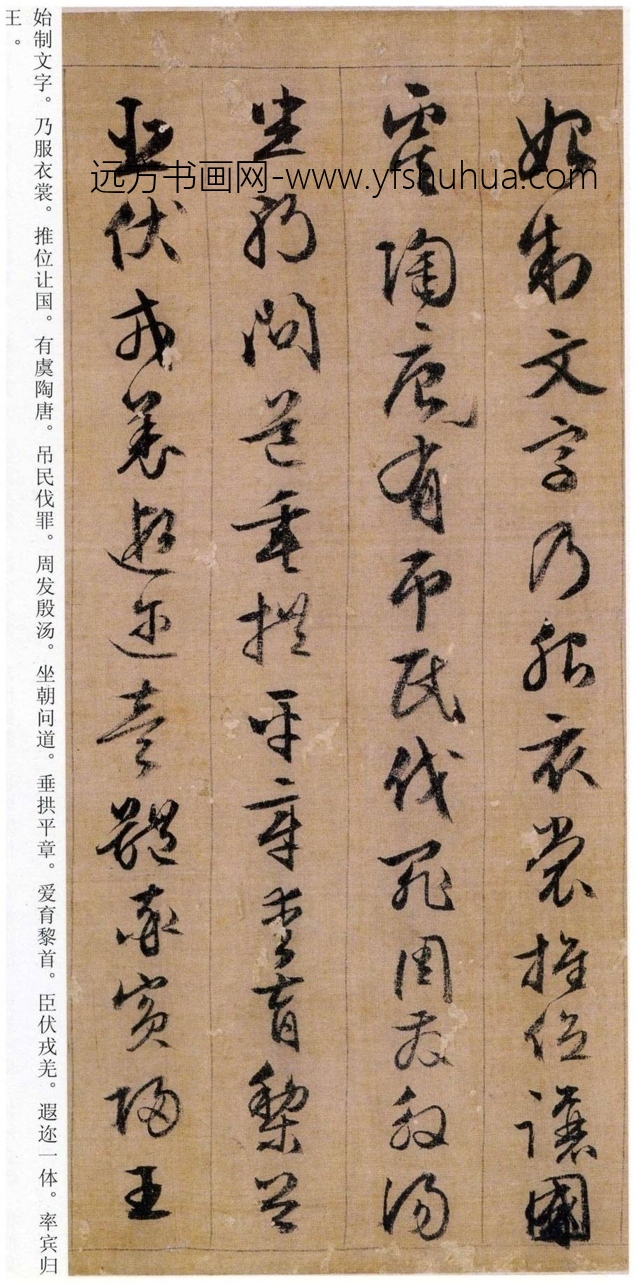 始制文字乃服衣裳推位讓國
虞陶唐有吊民伐罪周發殷湯
坐朝問道垂拱平章愛育黎首
臣伏戎羌遐迩壹體率賓歸王
始制文字。乃服衣裳。推位让国。有虞陶唐。吊民伐罪。周发殷汤。坐朝问道。垂拱平章。爱育黎首。臣伏戎羌。遐迩一体。率宾归
王。
远方书画网-www.yfshuhua.com